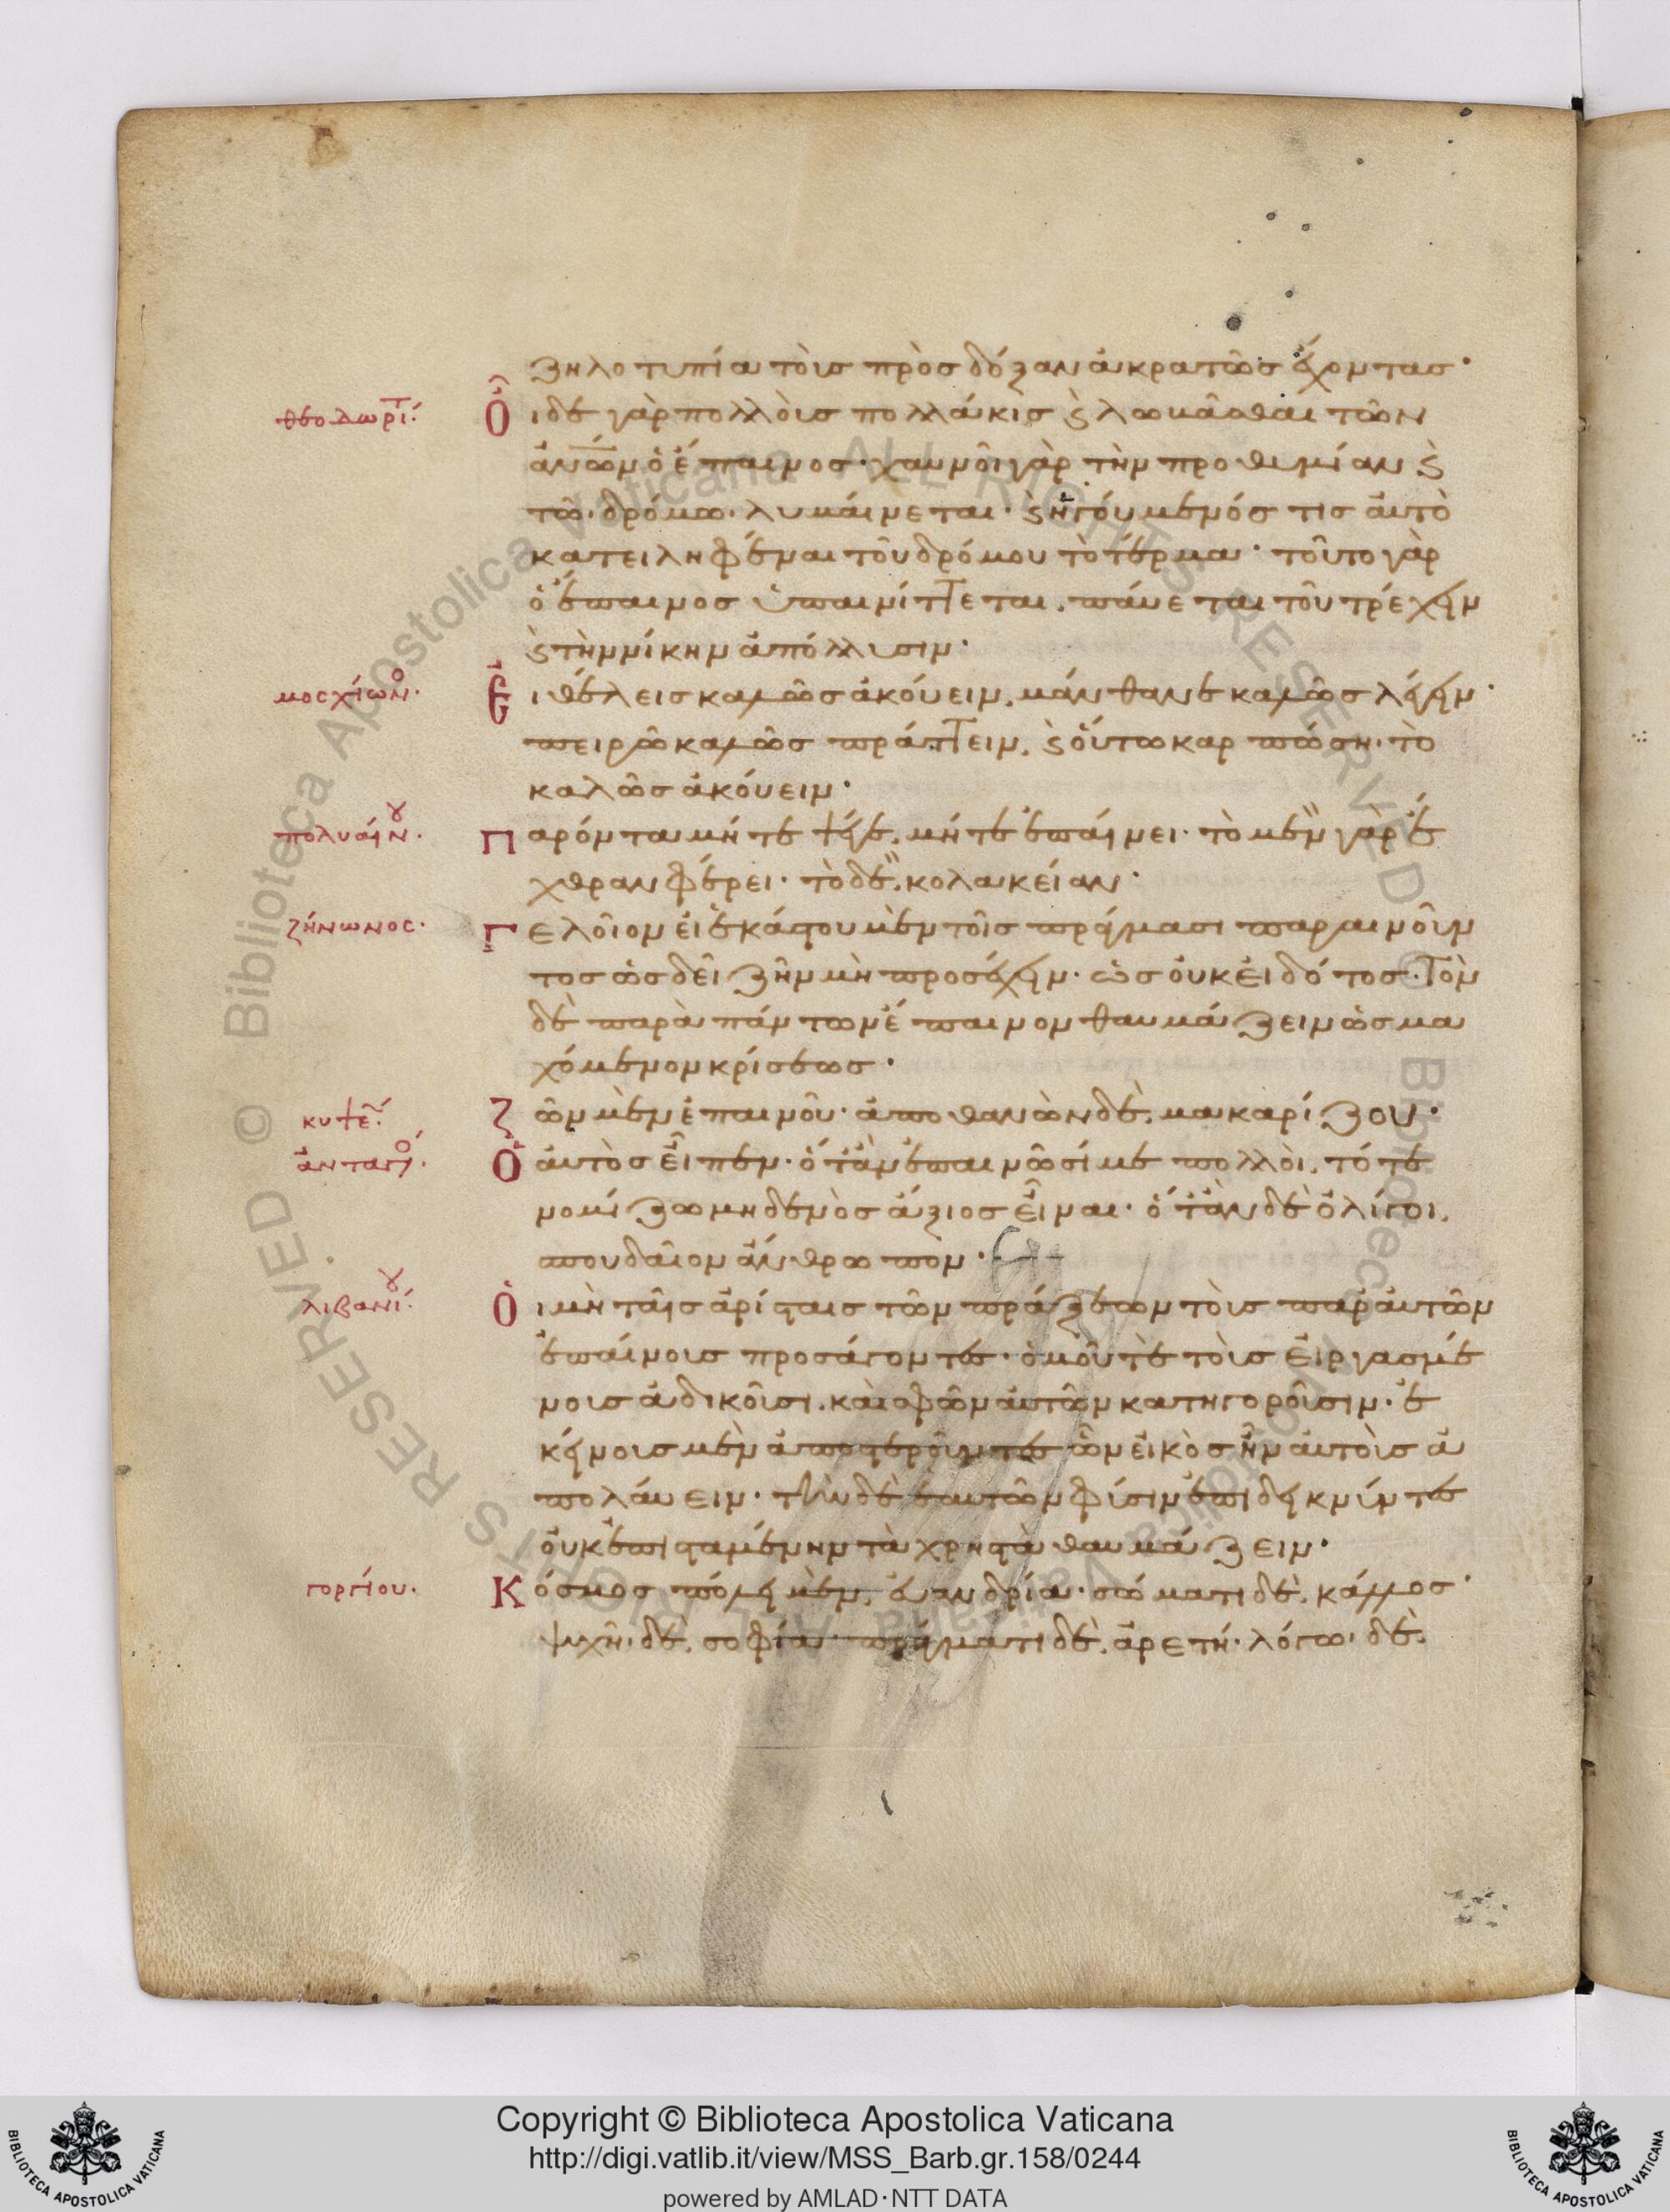 ζηλοτυπία τοὶς πρὸς δόξαν ἀκρατῶς ἔχοντας·
θεοδωρίτ Οἶδε γὰρ πολλοὶς πολλάκις ϗ λωμᾶσθαι τῶν
ἀνῶν ὁ ἔπαινος· χαυνοῖ γὰρ τὴν προθυμίαν ϗ
τῶ δρόμω λυμαίνεται· ϗ ἡγούμενός τις αὐτὸ
κατειληφέναι τοῦ δρόμου τὸ τέρμα· τοῦτο γὰρ
ὁ ἔπαινος ὑπαινίττεται. παύεται τοῦ τρέχειν
ϗ τὴν νίκην ἀπόλλυσιν·
μοσχίωνο· Εἰ θέλεις καλῶς ἀκούειν, μάνθανε καλῶς λέγειν·
πειρῶ καλῶς πράττειν, ϗ οὕτω καρπώση τὸ
καλῶς ἀκούειν·
πολυαίν· Παρόντα μήτε ψέγε, μήτε ἐπαίνει· τὸ μὲν γὰρ ἔ
χθραν φέρει· τὸ δὲ, κολακείαν·
ζήνωνος· Γελοῖον εἰ ἑκάστου μὲν τοῖς πράγμασι παραινοῦν
τος ὡς δεῖ ζῆν μὴ προσέχειν· ὡς οὐκ εἰδότος· Τὸν
δὲ παρὰ πάντων ἔπαινον θαυμάζειν ὡς μα
χόμενον κρίσεως·
Ζῶν μὲν ἐπαινοῦ· ἀποθανὼν δὲ, μακαρίζου·
Ὁ αὐτὸς εἶπεν· ὅτἂν ἐπαινῶσί με πολλοὶ, τότε
νομίζω μηδενὸς ἄξιος εἶναι· ὅτἂν δὲ ὀλίγοι,
σπουδαῖον ἄνθρωπον·
λιβανί· Οἱ μὴ ταῖς ἀρίσταις τῶν πράξεων τοὶς παρ' αὐτῶν
ἐπαίνοις προσάγοντες· ὁμοῦ τὲ τοὶς εἰργασμέ
νοις ἀδικοῦσι, καὶ σφῶν αὐτῶν κατηγοροῦσιν· ἐ
κείνοις μὲν ἀποστεροῦντες ὧν εἰκὸς ἦν αὐτοὶς ἀ
πολάυειν· τὴν δὲ ἑαυτῶν φύσιν ἐπιδεικνύντες
οὐκ ἐπισταμένην τὰ χρηστὰ θαυμάζειν·
γοργίου· Κόσμος πόλει μὲν, εὐανδρία· σώματι δὲ, κάλλος·
ψυχῆ δὲ, σοφία· πράγματι δὲ, ἀρετή· λόγω δὲ.
Copyright © Biblioteca Apostolica Vaticana
http://digi.vatlib.it/view/MSS_Barb.gr.158/0244
powered by AMLAD·NTT DATA